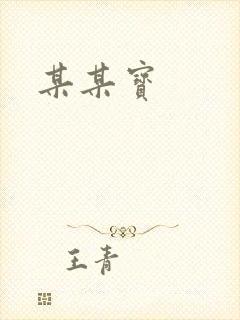 某某寶
王青